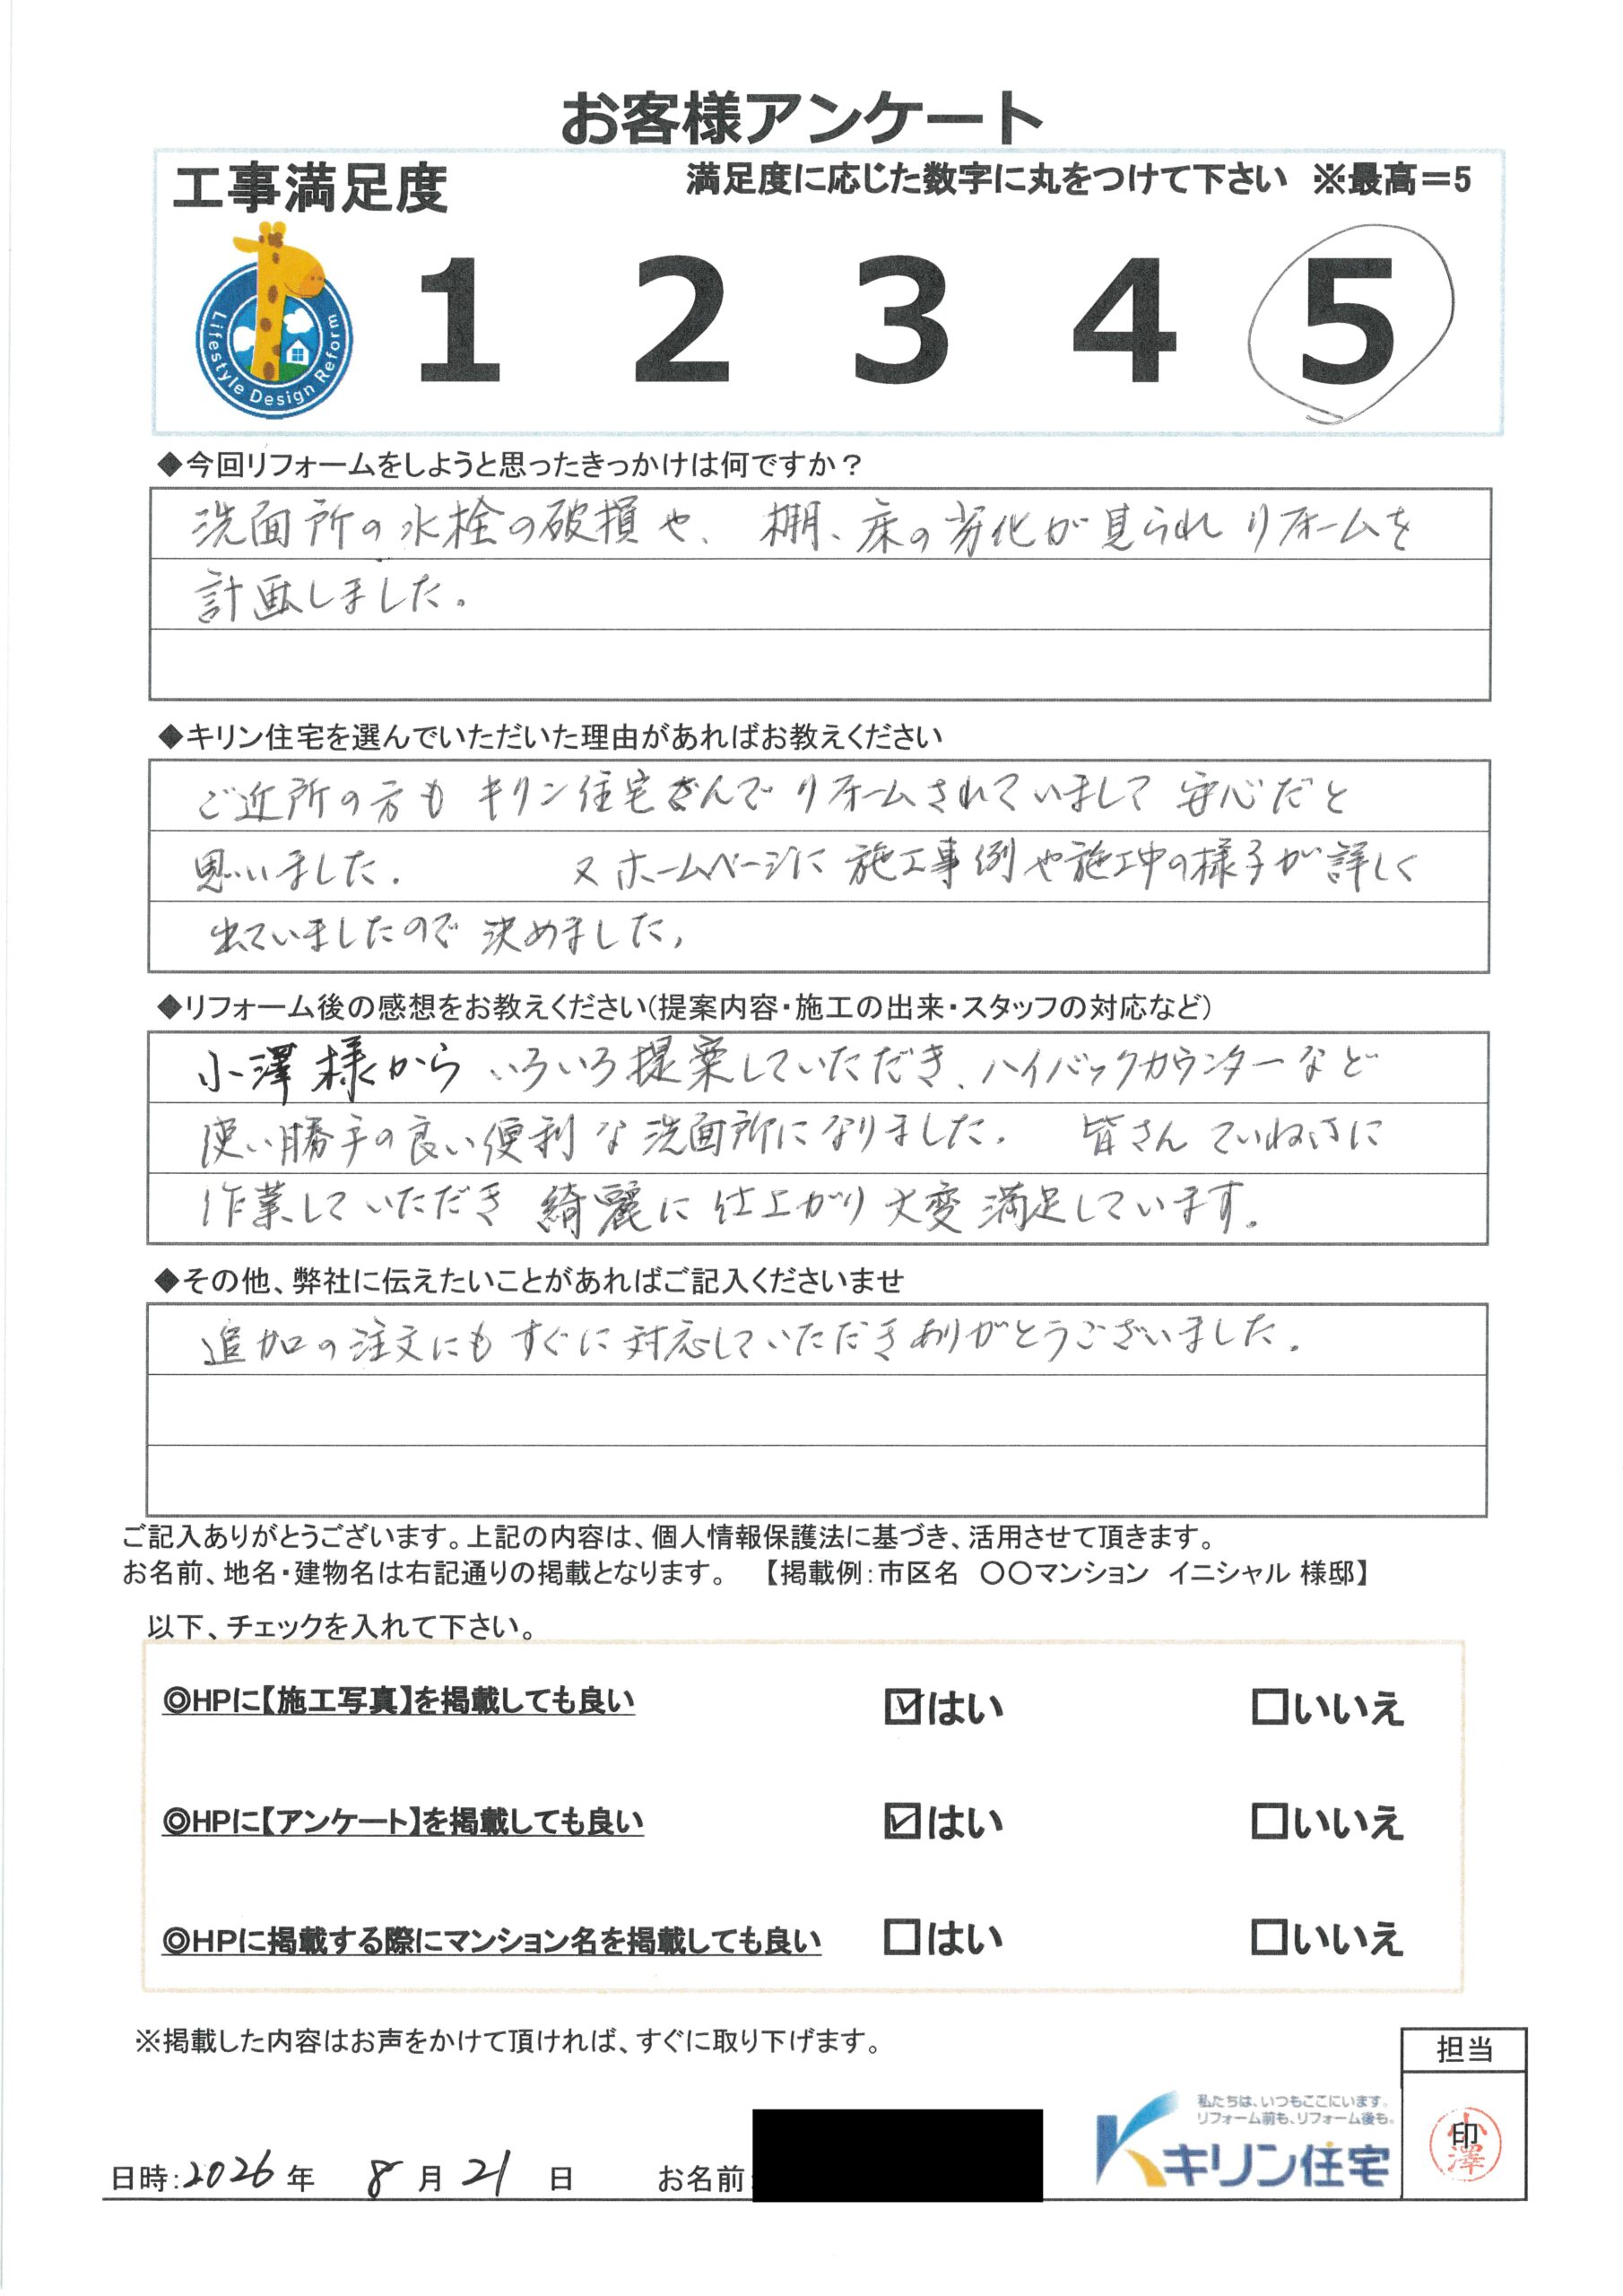 お客様アンケート
工事満足度
満足度に応じた数字に丸をつけて下さい ※最高=5
Lifestyle Design Reform
1 2 3 4 5
◆今回リフォームをしようと思ったきっかけは何ですか？
洗面所の水栓の破損や、棚、床の劣化が見られリフォームを
計画しました。
◆キリン住宅を選んでいただいた理由があればお教えください
ご近所の方もキリン住宅さんでリフォームされていまして安心だと
思いました。 又ホームページに施工事例や施工中の様子が詳しく
出ていましたので決めました。
◆リフォーム後の感想をお教えください(提案内容・施工の出来・スタッフの対応など)
小澤様からいろいろ提案していただき、ハイバックカウンターなど
使い勝手の良い便利な洗面所になりました。 皆さんていねいに
作業していただき綺麗に仕上がり大変満足しています。
◆その他、弊社に伝えたいことがあればご記入くださいませ
追加の注文にもすぐに対応していただきありがとうございました。
ご記入ありがとうございます。上記の内容は、個人情報保護法に基づき、活用させて頂きます。
お名前、地名・建物名は右記通りの掲載となります。 【掲載例：市区名 〇〇マンション イニシャル 様邸】
以下、チェックを入れて下さい。
◎HPに【施工写真】を掲載しても良い ☑はい □いいえ
◎HPに【アンケート】を掲載しても良い ☑はい □いいえ
◎HPに掲載する際にマンション名を掲載しても良い □はい □いいえ
※掲載した内容はお声をかけて頂ければ、すぐに取り下げます。
担当
私たちは、いつもここにいます。
リフォーム前も、リフォーム後も。
キリン住宅
印
小澤
日時：2026年 8月21日 お名前: